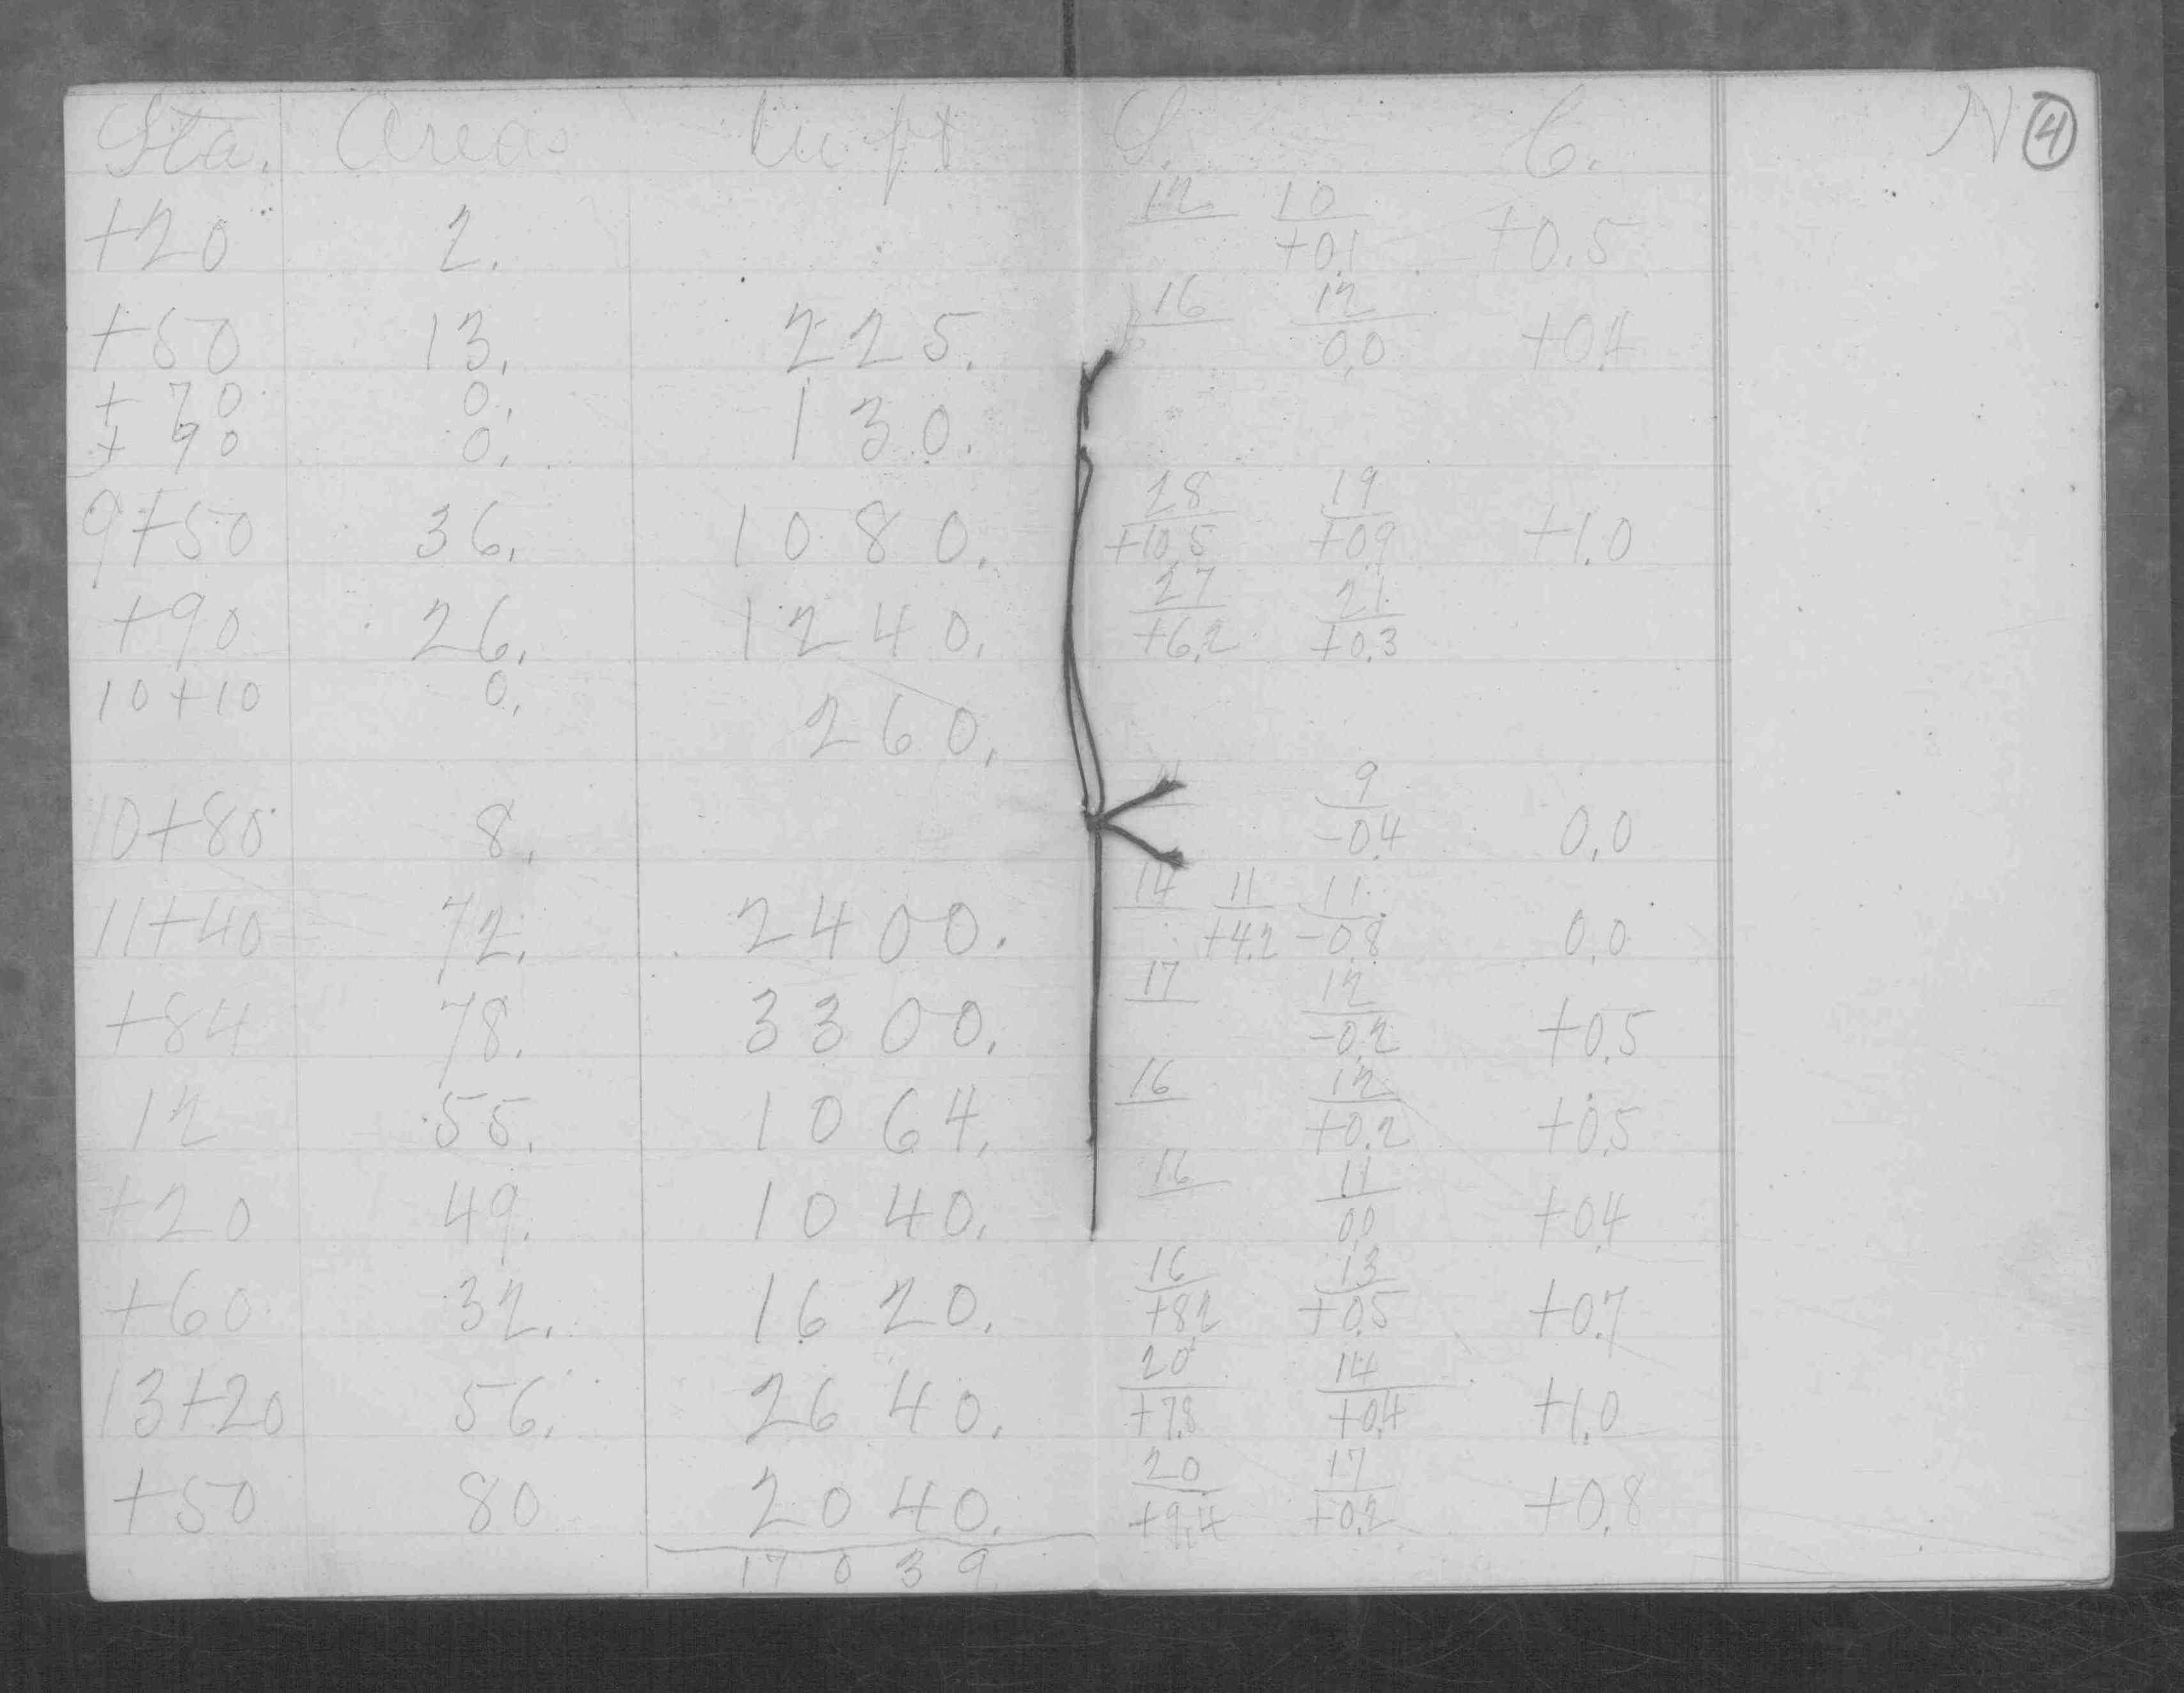 Sta. Areas Cu. ft. S. C. N ④
12 10
+20 2. +0.1 +0.5
16 12
+50 13. 225. 0.0 +0.4
+70 0.
130.
+90 0.
28 19
9+50 36. 1080. +10.5 +0.9 +1.0
27 21
+90 26. 1240. +6.2 +0.3
10+10 0.
260.
9
10+80 8. -0.4 0.0
14 11 11
11+40 72. 2400. +4.2 -0.8 0.0
17 12
+84 78. 3300. -0.2 +0.5
16 12
12 55. 1064. +0.2 +0.5
16 11
+20 49. 1040. 0.0 +0.4
16 13
+60 32. 1620. +8.2 +0.5 +0.7
20 14
13+20 56. 2640. +7.8 +0.4 +1.0
20 17
+50 80 2040. +9.4 +0.2 +0.8
17039